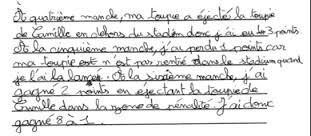 À
quatrième manche, ma toupie a éjecté la toupie
de Camille en dehors du stadium donc j'ai eu 3 points
À la cinquième manche, j'ai perdu 1 points car
ma toupie est n'est pas rentré dans le stadium quand
je l'ai lancer. À la sixième manche, j'ai
gagné 2 points en ejectant la toupie de
Camille dans la zone de pénalité. J'ai donc
gagné 8 à 1.